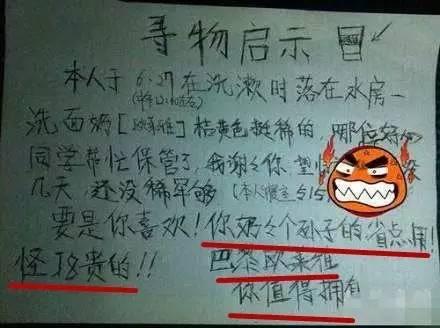 寻物启示
本人于6.27在洗漱时落在水房一
洗面奶[欧莱雅]桔黄色挺稀的,哪位好心
同学帮忙保管了,我谢々你,望 没
几天,还没稀罕够(本人寝室
要是你喜欢!你奶々个孙子的省点用!
怪J8贵的!! 巴黎欧莱雅
你值得拥有